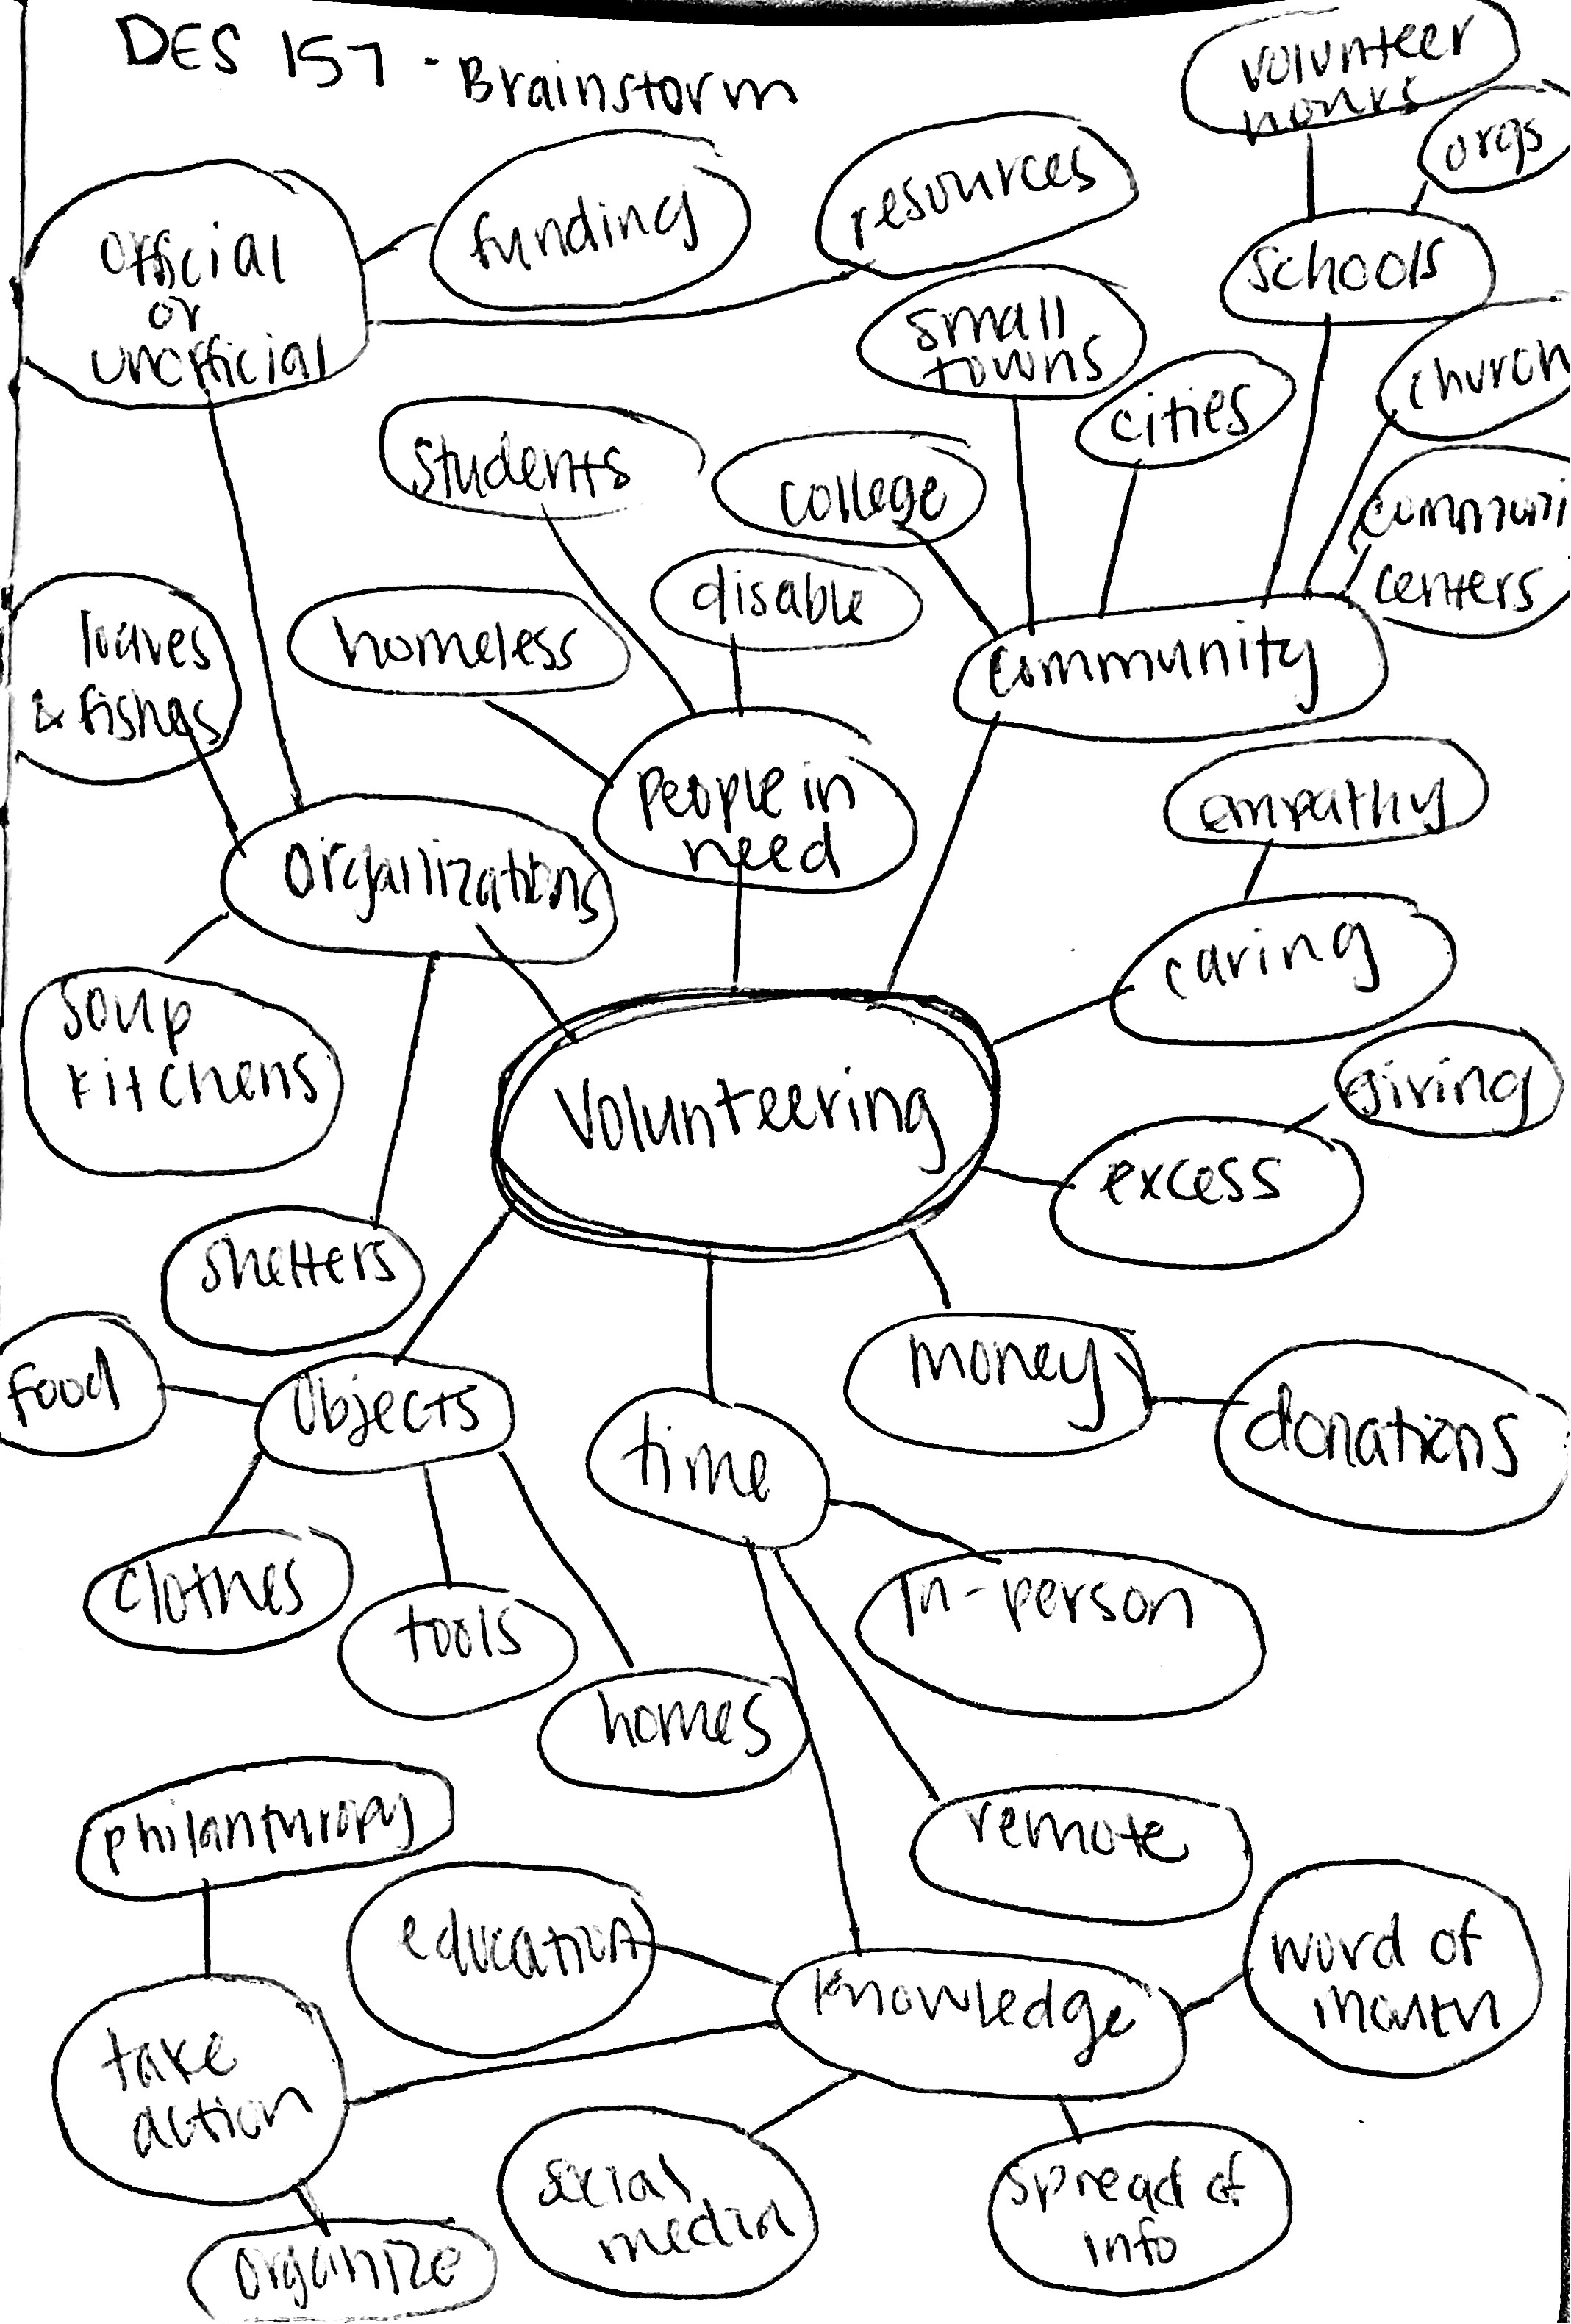 DES 157 - Brainstorm
volunteer
hours
orgs
official
or
unofficial
funding
resources
schools
small
towns
cities
church
students
college
communi
centers
loaves
& fishes
homeless
disable
community
people in
need
empathy
organizations
caring
soup
kitchens
Volunteering
giving
excess
shelters
money
donations
food
objects
time
clothes
tools
in-person
homes
philanthropy
remote
education
knowledge
word of
mouth
take
action
social
media
spread of
info
organize